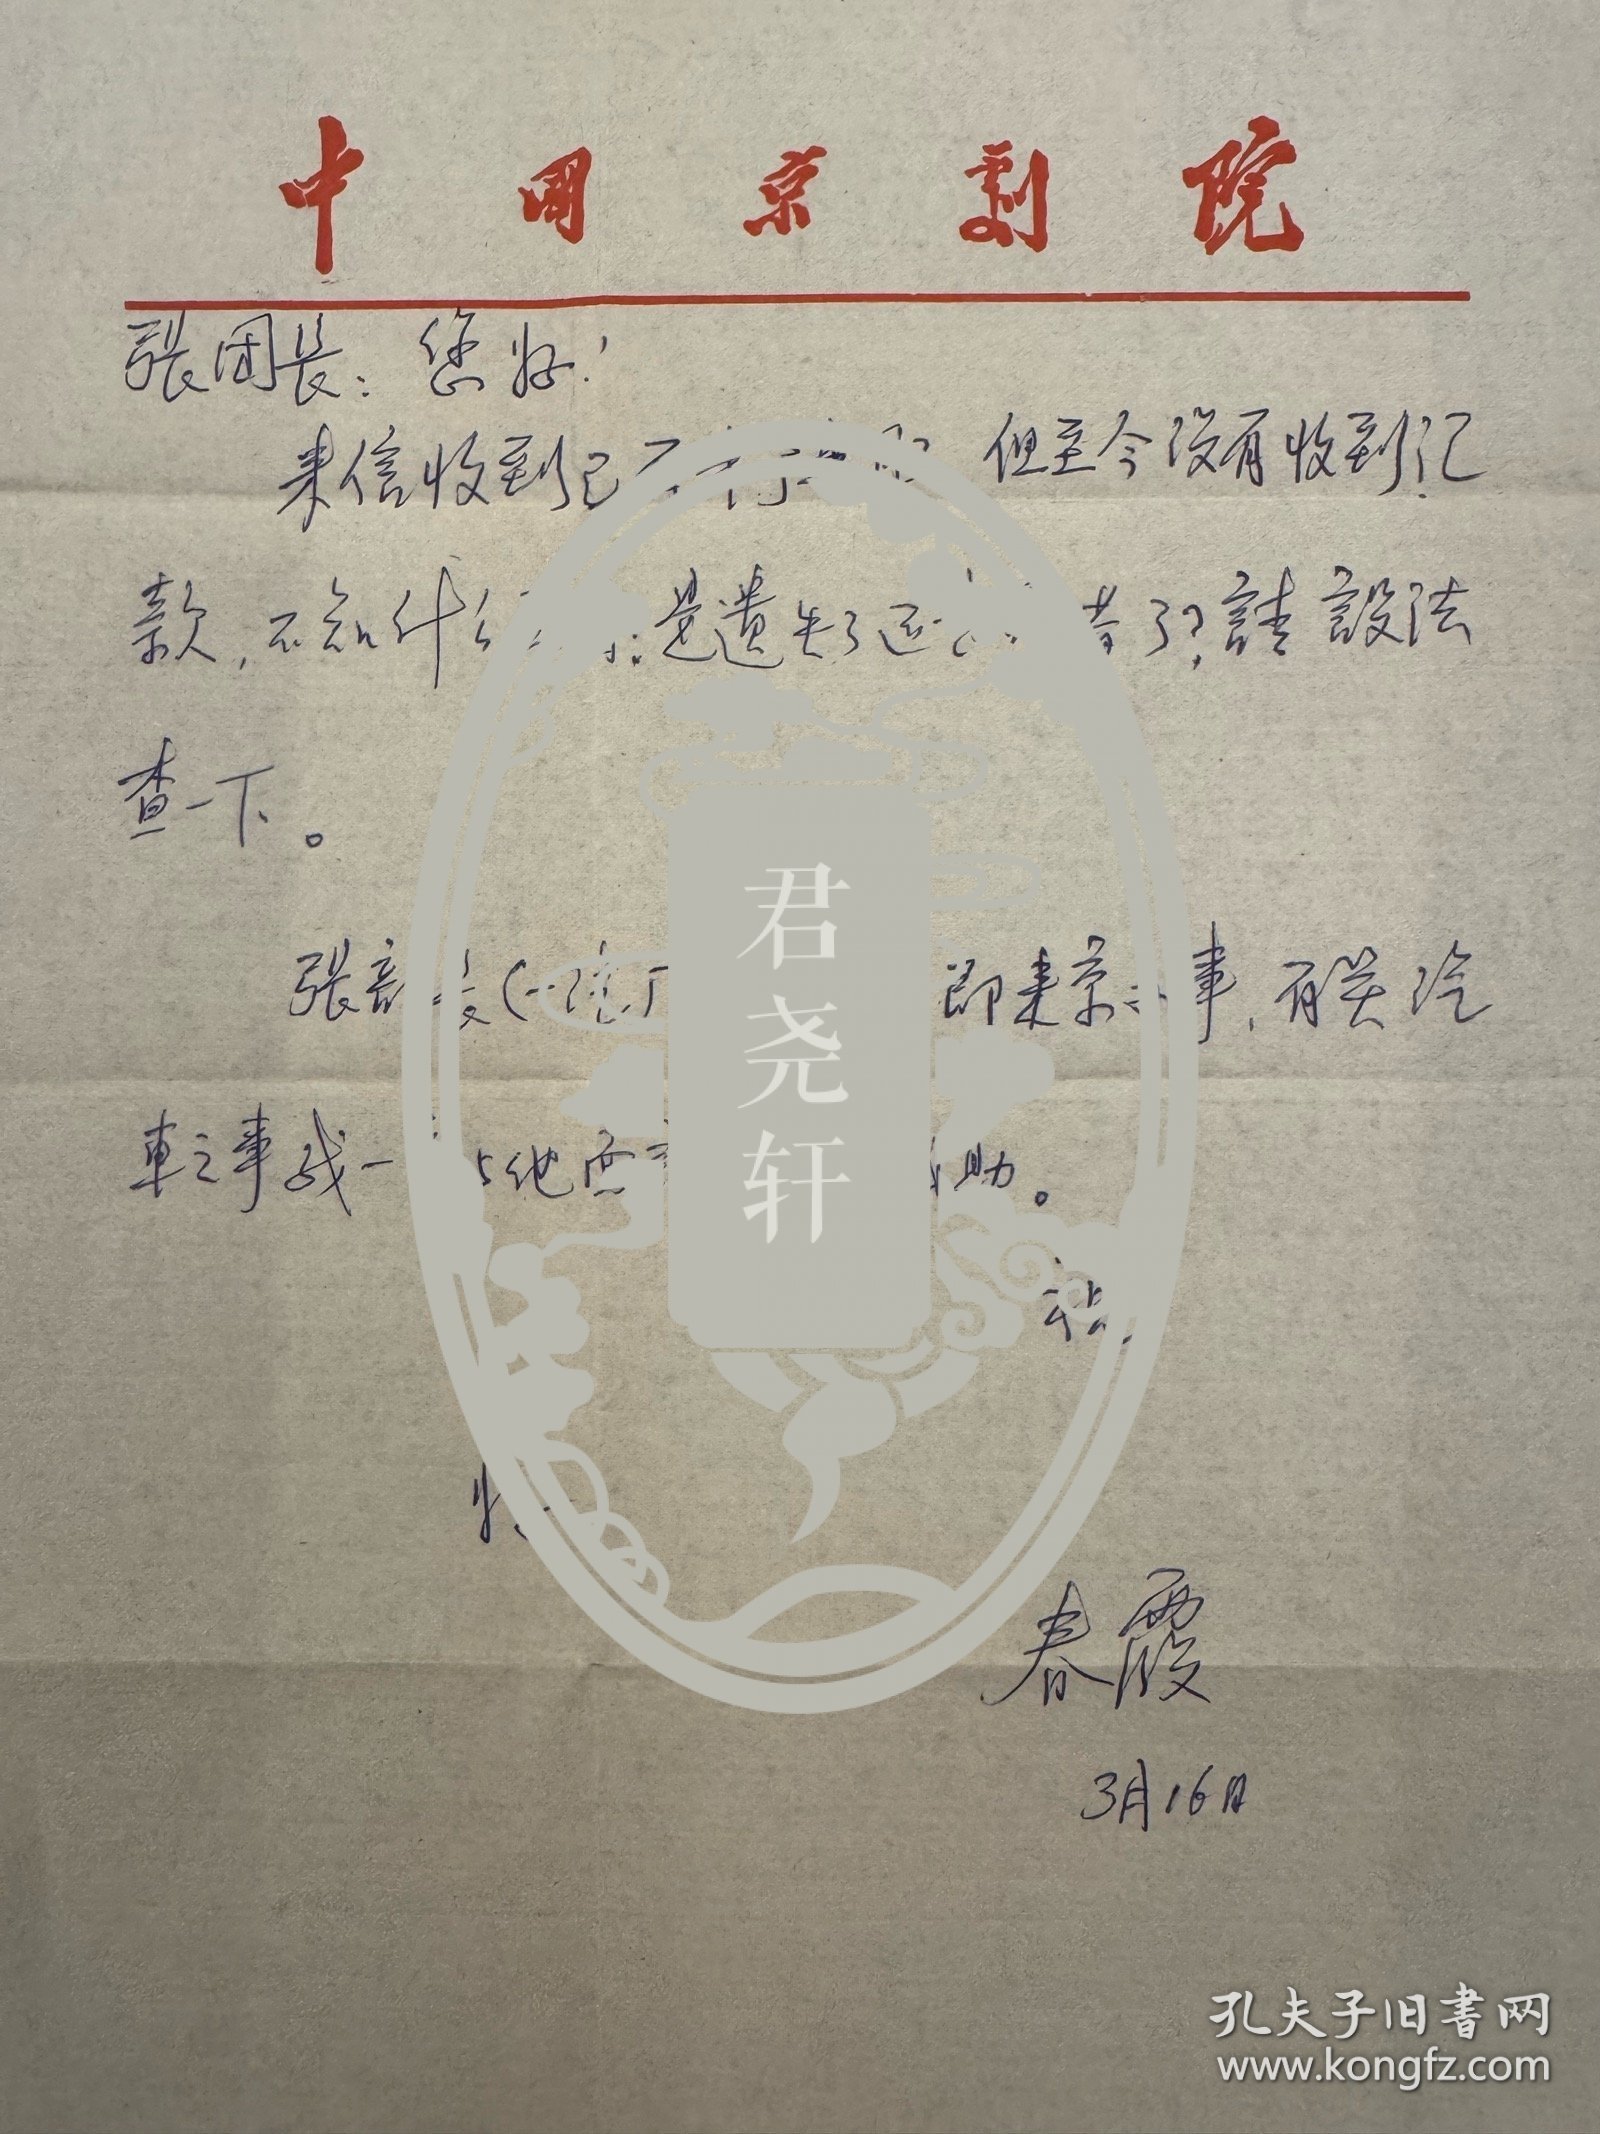 中国京剧院
張团长：您好！
来信收到已 但至今没有收到汇
款，不知什么 是遗失了还 了？請設法
查一下。
張 即来京 事，有关汽
車之事我一 与他面 助。
春霞
3月16日
君尧轩
孔夫子旧书网
www.kongfz.com